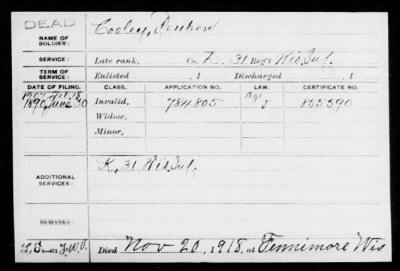 DEAD
NAME OF SOLDIER: Cooley, Reuben
SERVICE: Late rank, Co. D. 31 Reg't Wis Inf.
TERM OF SERVICE: Enlisted , 1 Discharged , 1
DATE OF FILING. CLASS. APPLICATION NO. LAW. CERTIFICATE NO.
1890 June 30 Invalid, 784.805 825390
Widow,
Minor,
ADDITIONAL SERVICES: K, 31 Wis. Inf.
REMARKS:
Died Nov 20, 1918, at Fennimore Wis